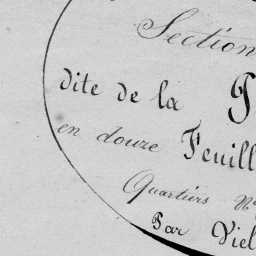 Section
dite de la
en douze Feuill
Quartiers N
Par Viel